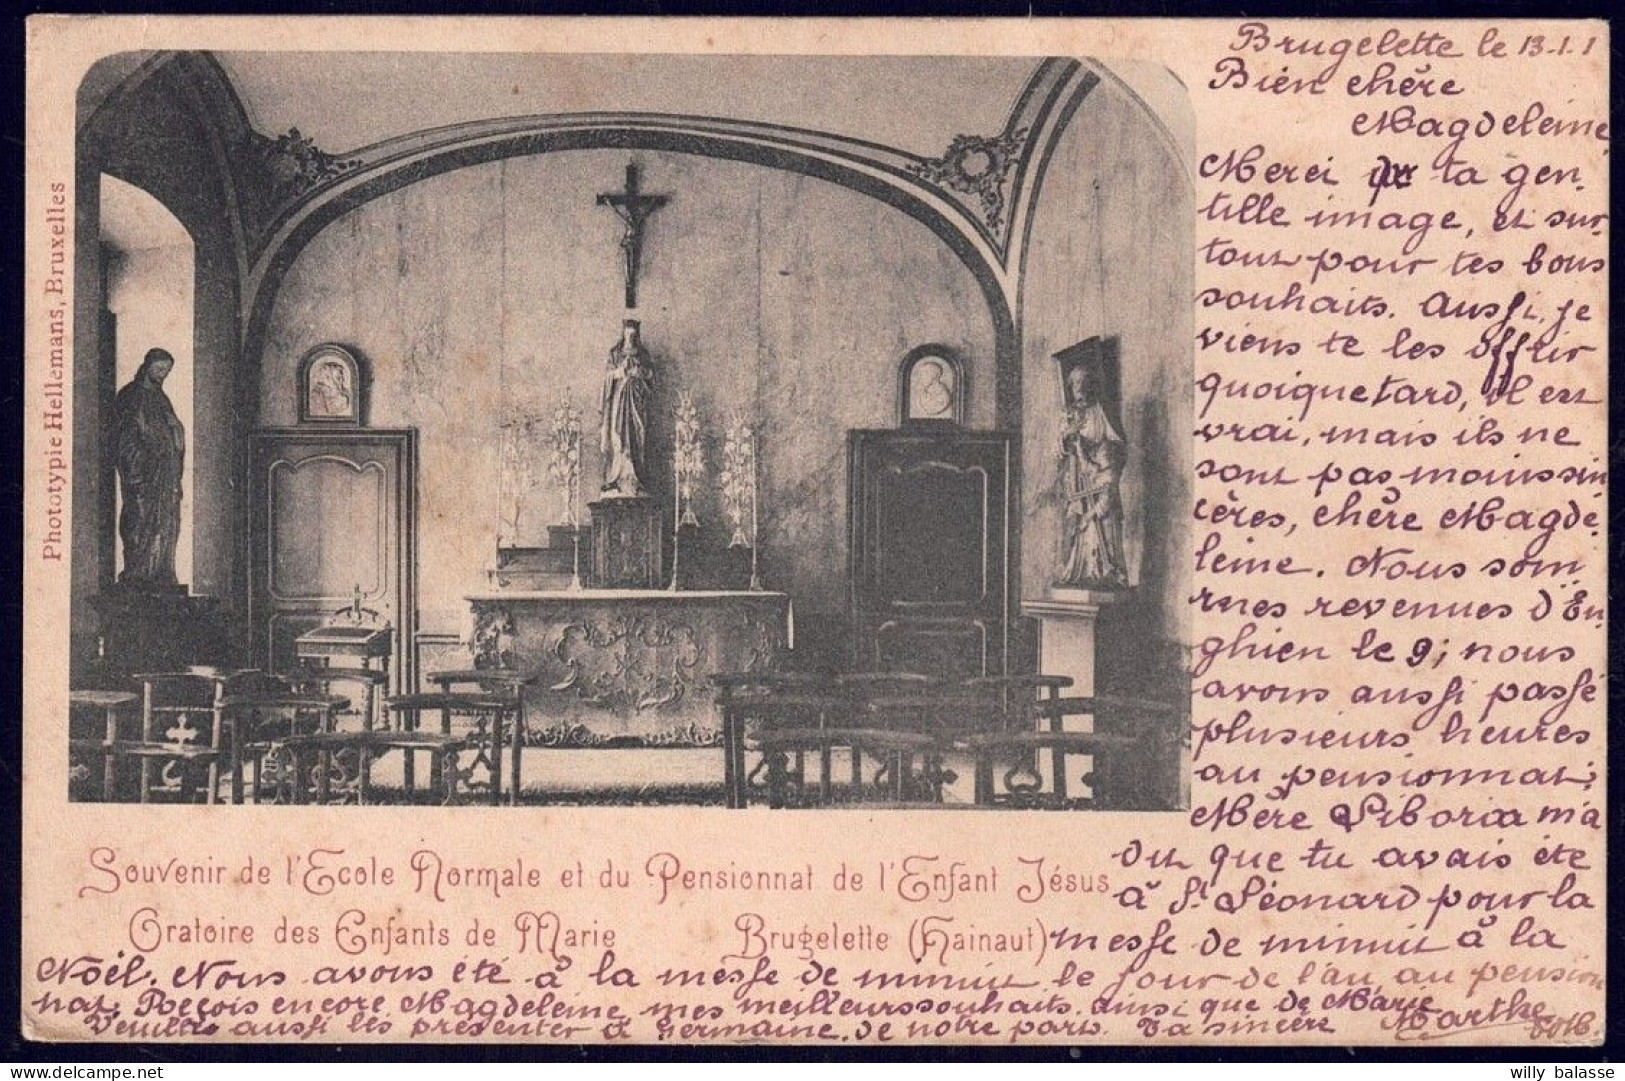 Brugelette le 13-1.1
Bien chère
Magdeleine
Merci de ta gen-
tille image, et sur-
tout pour tes bons
souhaits. Aussi, je
viens te les offrir
quoique tard, il est
vrai, mais ils ne
sont pas moins sin
cères, chère Magde-
leine. Nous som
mes revenues d'En-
ghien le 9; nous
avons aussi passé
plusieurs heures
au pensionnat;
Mère Liboria m'a
dit que tu avais été
à St Léonard pour la
messe de minuit à la
Noël. Nous avons été à la messe de minuit le jour de l'an, au pension
nat. Reçois encore Magdeleine mes meilleurs souhaits ainsi que de Marie
Veuille aussi les présenter à Germaine, de notre part. Ta sincère Marthe
Phototypie Hellemans, Bruxelles
Souvenir de l'Ecole Normale et du Pensionnat de l'Enfant Jésus
Oratoire des Enfants de Marie Brugelette (Hainaut)
willy balasse